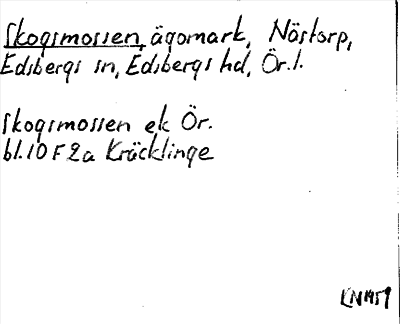 Skogsmossen, ägomark, Nästorp,
Edsbergs sn, Edsbergs hd, Ör.l.
Skogsmossen ek Ör.
bl.10 F 2a Kräcklinge
KN 1951